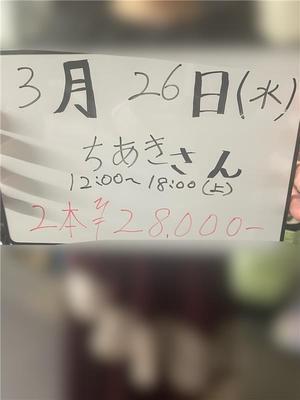 3月26日(水)
ちあきさん
12:00〜18:00(上)
2本¥28.000-